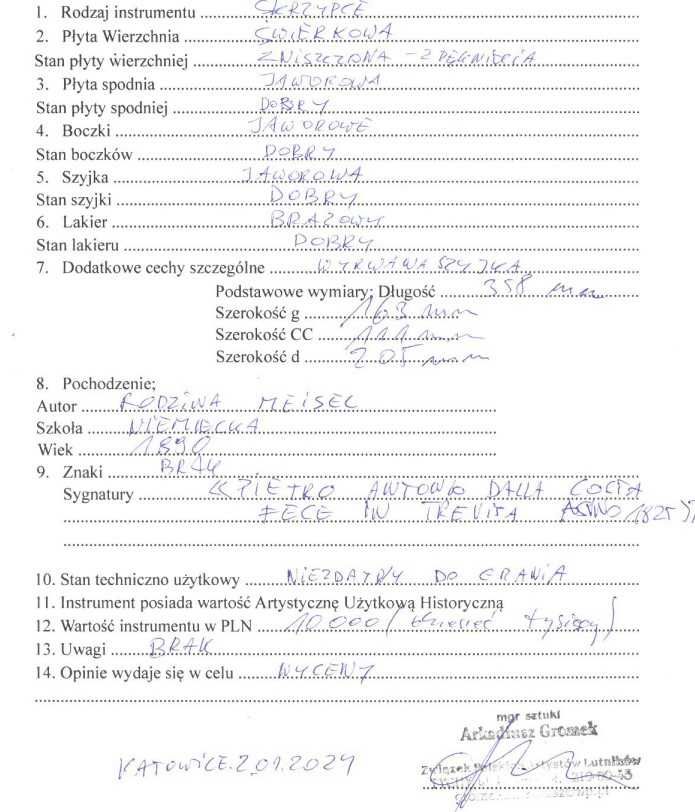 1. Rodzaj instrumentu SKRZYPCE
2. Płyta Wierzchnia ŚWIERKOWA
Stan płyty wierzchniej ZNISZCZONA - 2 PĘKNIĘCIA
3. Płyta spodnia JAWOROWA
Stan płyty spodniej DOBRY
4. Boczki JAWOROWE
Stan boczków DOBRY
5. Szyjka JAWOROWA
Stan szyjki DOBRY
6. Lakier BRĄZOWY
Stan lakieru DOBRY
7. Dodatkowe cechy szczególne WYRWANA SZYJKA
Podstawowe wymiary; Długość 358 mm
Szerokość g 163 mm
Szerokość CC 111 mm
Szerokość d 205 mm
8. Pochodzenie;
Autor RODZINA MEISEL
Szkoła NIEMIECKA
Wiek 1890
9. Znaki BRAK
Sygnatury «PIETRO ANTONIO DALLA COSTA
FECE IN TREVISA ANNO 1825»
10. Stan techniczno użytkowy NIEZDATNY DO GRANIA
11. Instrument posiada wartość Artystycznę Użytkową Historyczną
12. Wartość instrumentu w PLN 10.000 (dziesięć tysięcy)
13. Uwagi BRAK
14. Opinie wydaje się w celu WYCENY
mgr sztuki
Arkadiusz Gromek
KATOWICE.2.01.2024
Związek Polskich Artystów Lutników